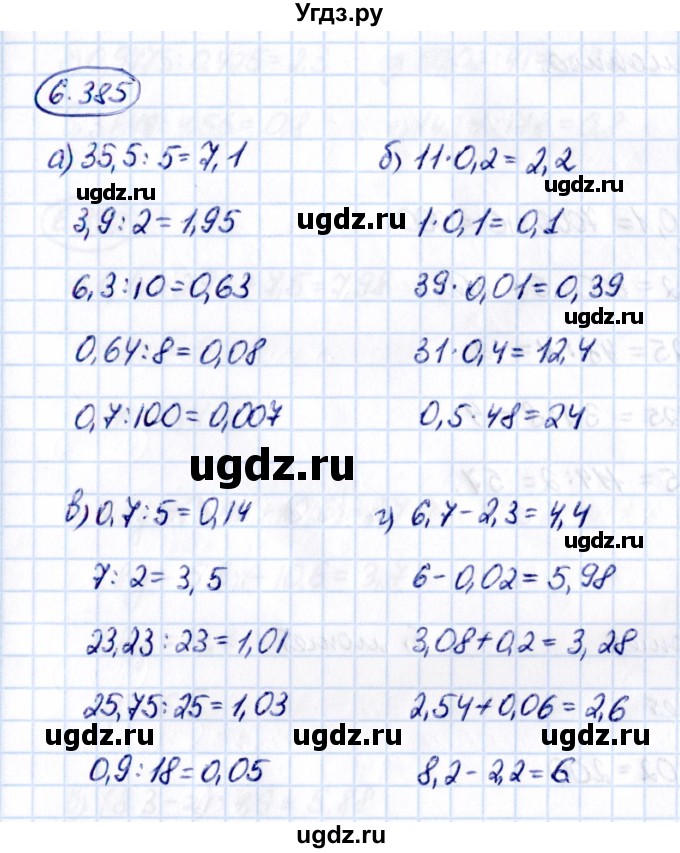 Угдз.ру
6.385
а) 35,5 : 5 = 7,1
ugdz.ru
3,9 : 2 = 1,95
6,3 : 10 = 0,63
0,64 : 8 = 0,08
0,7 : 100 = 0,007
б) 11 · 0,2 = 2,2
ugdz.ru
ugdz.ru
1 · 0,1 = 0,1
39 · 0,01 = 0,39
ugdz.ru
31 · 0,4 = 12,4
0,5 · 48 = 24
ugdz.ru
в) 0,7 : 5 = 0,14
7 : 2 = 3,5
23,23 : 23 = 1,01
ugdz.ru
25,75 : 25 = 1,03
ugdz.ru
0,9 : 18 = 0,05
г) 6,7 - 2,3 = 4,4
ugdz.ru
6 - 0,02 = 5,98
3,08 + 0,2 = 3,28
2,54 + 0,06 = 2,6
ugdz.ru
ugdz.ru
8,2 - 2,2 = 6
ugdz.ru